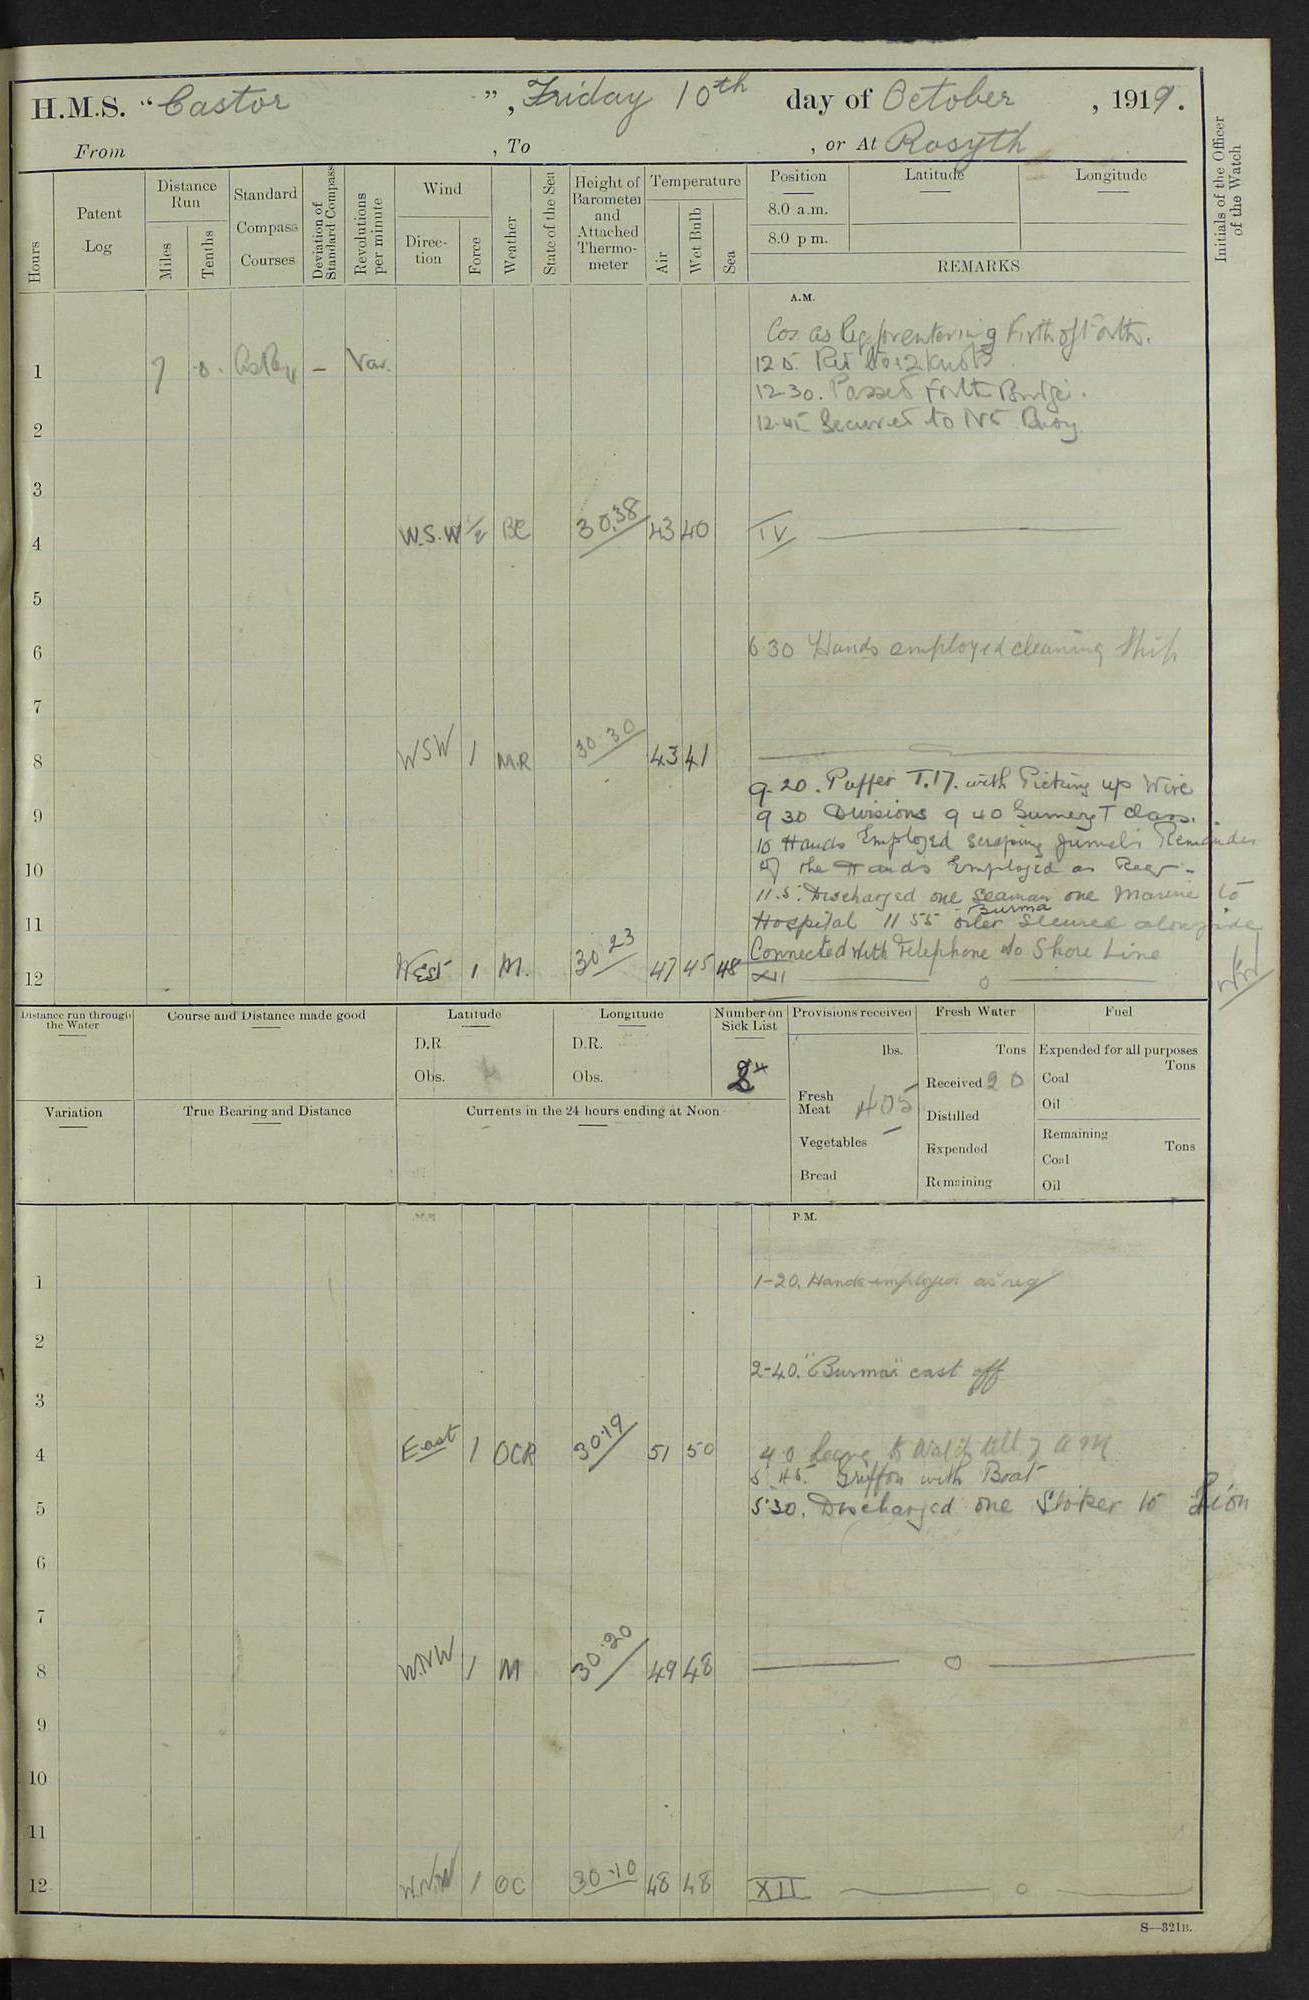 H.M.S. "Castor", Friday 10th day of October, 1919.
From , To , or At Rosyth
Hours
Patent Log
Distance Run
Miles
Tenths
Standard Compass Courses
Deviation of Standard Compass
Revolutions per minute
Wind
Direc-tion
Force
Weather
State of the Sea
Height of Barometer and Attached Thermo-meter
Temperature
Air
Wet Bulb
Sea
Position
8.0 a.m.
8.0 p m.
Latitude
Longitude
REMARKS
Initials of the Officer of the Watch
A.M.
Cos as Req for entering Firth of Forth.
1 7 .0. – Var.
12 5. knots
12-30. Passed Forth Bridge.
2
12.45 Secured to Buoy
3
4 W.S.W ½ BC 30.38 43 40 IV
5
6 6.30 Hands employed cleaning Ship
7
8 WSW 1 M.R 30.30 43 41
9-20. Puffer T.17. with Picking up Wire
9 9 30 Divisions 9 40 T class.
10 Hands Employed scraping funnels Remainder
10 of the Hands Employed as Req -
11.5. Discharged one Seaman one Marine to
11 Hospital 11 55 "Burma" oiler Secured alongside
Connected with Telephone to Shore Line
12 West 1 M. 30 23 47 45 48 XII
Distance run through the Water
Course and Distance made good
Latitude
D.R.
Obs.
Longitude
D.R.
Obs.
Number on Sick List
Provisions received
lbs.
Fresh Meat 405
Vegetables
Bread
Fresh Water
Tons
Received 20
Distilled
Expended
Remaining
Fuel
Expended for all purposes
Tons
Coal
Oil
Remaining
Tons
Coal
Oil
Variation
True Bearing and Distance
Currents in the 24 hours ending at Noon
P.M.
1 1-20. Hands employed as req
2
2-40. "Burma" cast off
3
4 East 1 OCR 30.19 51 50 4 0 Leave to Watch till 7 AM
5 45. Griffon with Boat
5 5.30. Discharged one Stoker to Lion
6
7
8 W.NW 1 M 30.20 49 48
9
10
11
12 W.N.W 1 OC 30.10 48 48 XII
S—321B.